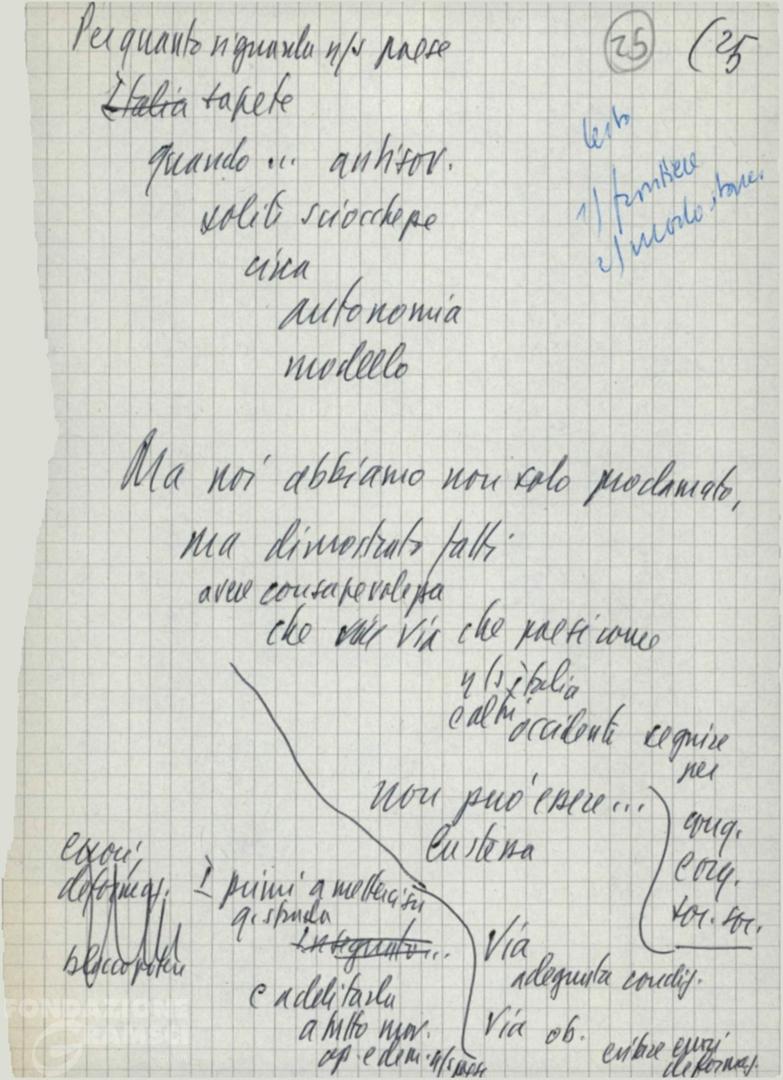 25 (25
Per quanto riguarda n/s paese
Italia sapete
quando ... antisov.
soliti sciocchezze
circa
autonomia
modello
1) frontiere
2) modo
Ma noi abbiamo non solo proclamato,
ma dimostrato fatti
avere consapevolezza
che via che paesi come
n/s italia
e altri occidente seguire
per
non può essere...
la stessa
cong.
corg.
soc. soc.
errori,
deformaz.
blocco potere
I primi a metterci su
q. strada
Integrato...
e additarla
a tutto mov.
op. e dem. n/s paese
Via
adeguata condiz.
Via ob.
evitare errori
deformaz.
FONDAZIONE
GRAMSCI